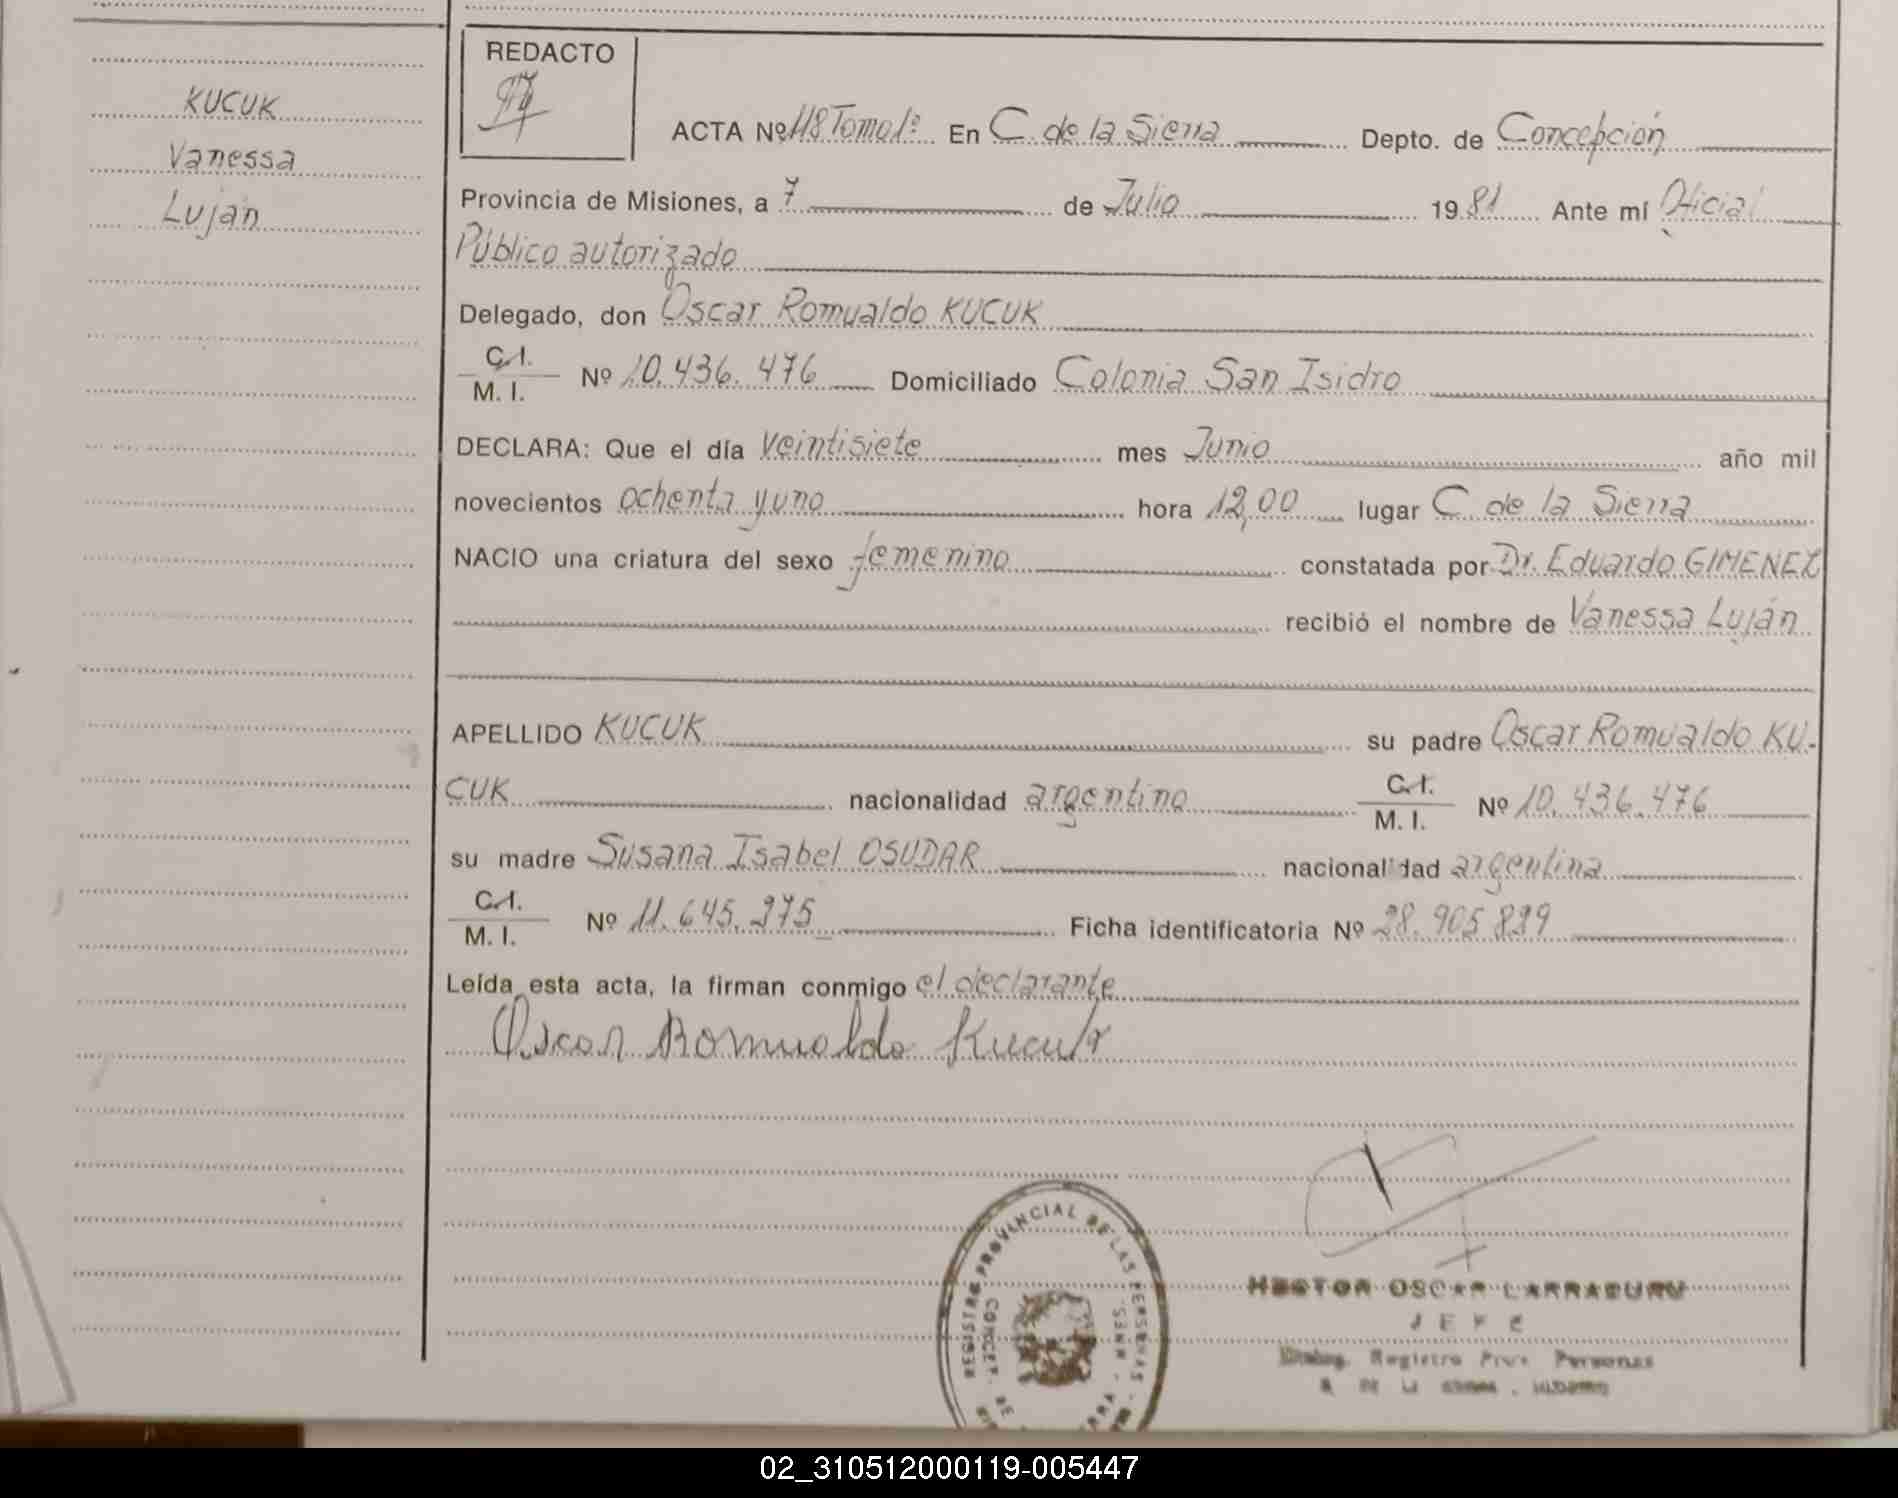 KUCUK
Vanessa
Luján
REDACTO
ACTA Nº 118 Tomo 1º En C. de la Sierra Depto. de Concepción
Provincia de Misiones, a 7 de Julio 1981 Ante mí Oficial
Público autorizado
Delegado, don Oscar Romualdo KUCUK
C.I.
M. I. Nº 10.436.476 Domiciliado Colonia San Isidro
DECLARA: Que el día veintisiete mes Junio año mil
novecientos ochenta y uno hora 12,00 lugar C. de la Sierra
NACIO una criatura del sexo femenino constatada por Dr. Eduardo GIMENEZ
recibió el nombre de Vanessa Luján
APELLIDO KUCUK su padre Oscar Romualdo KU-
CUK nacionalidad argentino C.I.
M. I. Nº 10.436.476
su madre Susana Isabel OSUDAR nacionalidad argentina
C.I.
M. I. Nº 11.645.975 Ficha identificatoria Nº 28.905.899
Leída esta acta, la firman conmigo el declarante
Oscar Romualdo Kucuk
REGISTRO PROVINCIAL DE LAS PERSONAS
HECTOR OSCAR LARRABURU
JEFE
Registro Prov. Personas
02_310512000119-005447